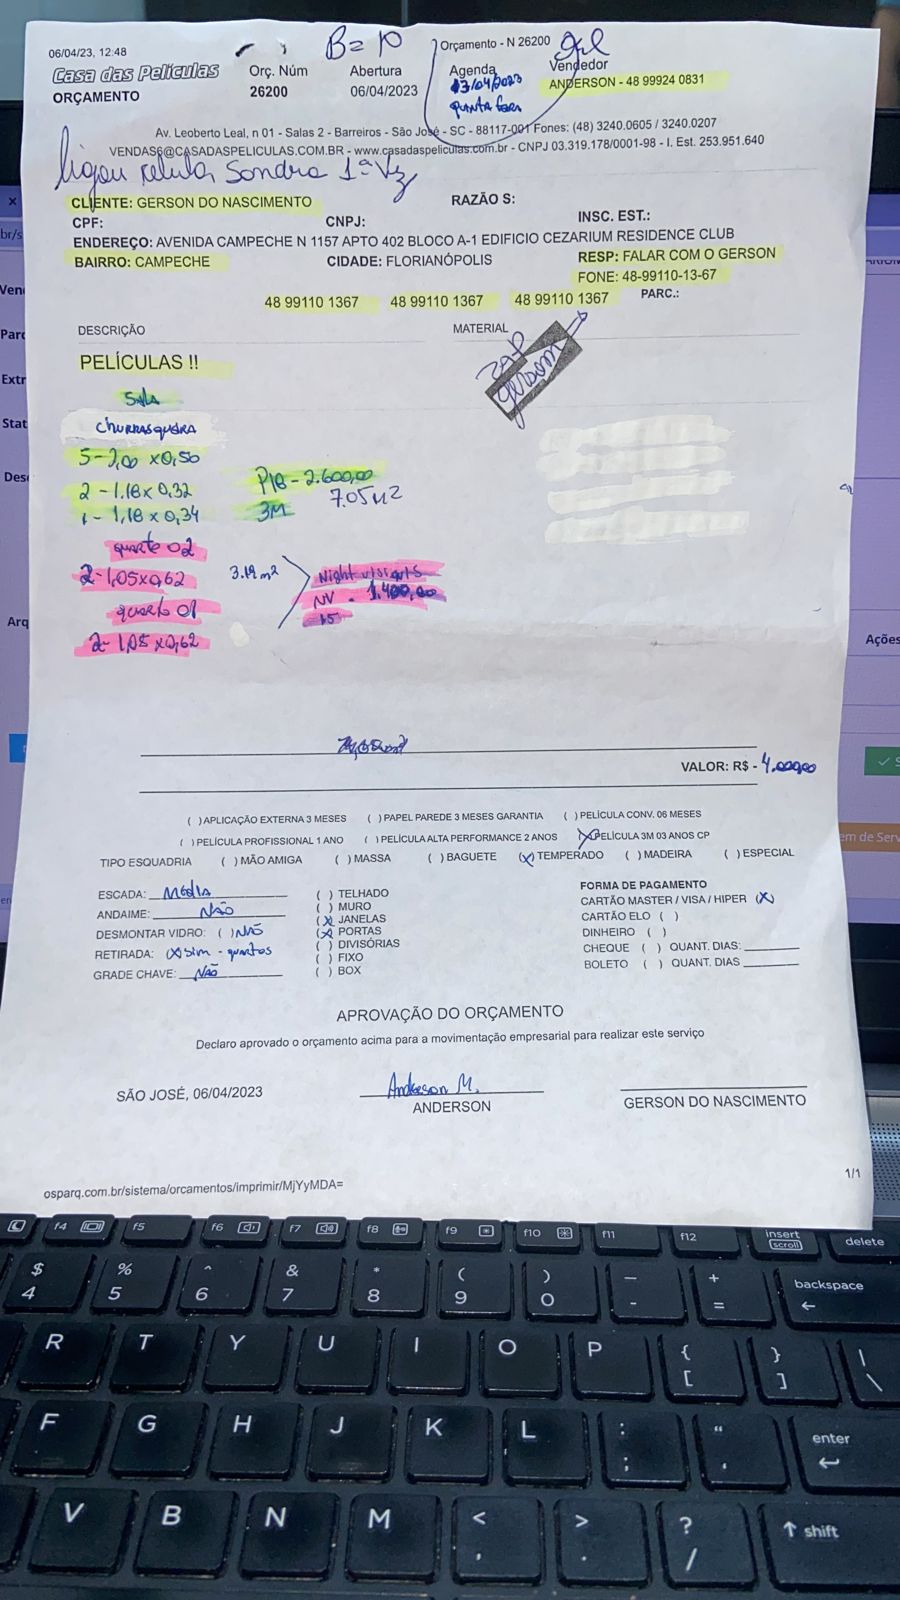 06/04/23, 12:48
B= 10
Orçamento - N 26200
Casa das Películas
ORÇAMENTO
Orç. Núm
26200
Abertura
06/04/2023
Agenda
13/04/2023
QUINTA feira
Vendedor
ANDERSON - 48 99924 0831
Av. Leoberto Leal, n 01 - Salas 2 - Barreiros - São José - SC - 88117-001 Fones: (48) 3240.0605 / 3240.0207
VENDAS6@CASADASPELICULAS.COM.BR - www.casadaspeliculas.com.br - CNPJ 03.319.178/0001-98 - I. Est. 253.951.640
ligou Sondra 1ª Vz
CLIENTE: GERSON DO NASCIMENTO
RAZÃO S:
CPF:
CNPJ:
INSC. EST.:
ENDEREÇO: AVENIDA CAMPECHE N 1157 APTO 402 BLOCO A-1 EDIFICIO CEZARIUM RESIDENCE CLUB
BAIRRO: CAMPECHE
CIDADE: FLORIANÓPOLIS
RESP: FALAR COM O GERSON
FONE: 48-99110-13-67
48 99110 1367 48 99110 1367 48 99110 1367
PARC.:
DESCRIÇÃO
MATERIAL
PELÍCULAS !!
ZAP
gerson
SALA
CHURRASQUEIRA
5 - 2,00 x 0,50
2 - 1.18 x 0,32
1 - 1,18 x 0,34
P18 - 2.600,00
3M
7.05 M2
quarto 02
2 - 1,05x0,62
3.19 m²
quarto 01
2 - 1,05 x 0,62
NV - 1.400,00
15
VALOR: R$ - 4.000,00
( )APLICAÇÃO EXTERNA 3 MESES ( )PAPEL PAREDE 3 MESES GARANTIA ( )PELÍCULA CONV. 06 MESES
( )PELÍCULA PROFISSIONAL 1 ANO ( )PELÍCULA ALTA PERFORMANCE 2 ANOS (X)PELÍCULA 3M 03 ANOS CP
TIPO ESQUADRIA ( )MÃO AMIGA ( )MASSA ( )BAGUETE (X)TEMPERADO ( )MADEIRA ( )ESPECIAL
ESCADA: Média
ANDAIME: NÃO
DESMONTAR VIDRO: ( )NÃO
RETIRADA: (X)Sim - quartos
GRADE CHAVE: NÃO
( ) TELHADO
( ) MURO
(X) JANELAS
(X) PORTAS
( ) DIVISÓRIAS
( ) FIXO
( ) BOX
FORMA DE PAGAMENTO
CARTÃO MASTER / VISA / HIPER (X)
CARTÃO ELO ( )
DINHEIRO ( )
CHEQUE ( ) QUANT. DIAS:
BOLETO ( ) QUANT. DIAS
APROVAÇÃO DO ORÇAMENTO
Declaro aprovado o orçamento acima para a movimentação empresarial para realizar este serviço
SÃO JOSÉ, 06/04/2023
Anderson M.
ANDERSON
GERSON DO NASCIMENTO
1/1
osparq.com.br/sistema/orcamentos/imprimir/MjYyMDA=
br/s
Ven
Parc
Extr
Stat
Des
Arq
Ações
em de Serv
f4 f5 f6 f7 f8 f9 f10 f11 f12 insert (scroll) delete
$ 4 % 5 ^ 6 & 7 * 8 ( 9 ) 0 _ - + = backspace
R T Y U I O P { [ } ] | \
F G H J K L : ; " ' enter
V B N M < , > . ? / shift